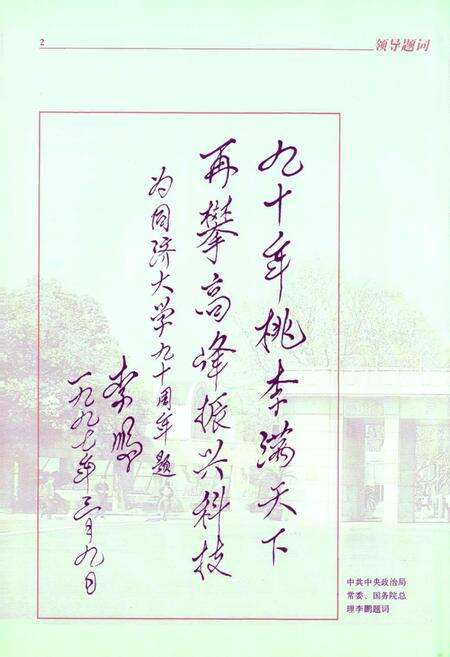 2
领导题词
九十年桃李满天下
再攀高峰振兴科技
为同济大学九十周年题
李鹏
一九九七年三月九日
中共中央政治局
常委、国务院总
理李鹏题词